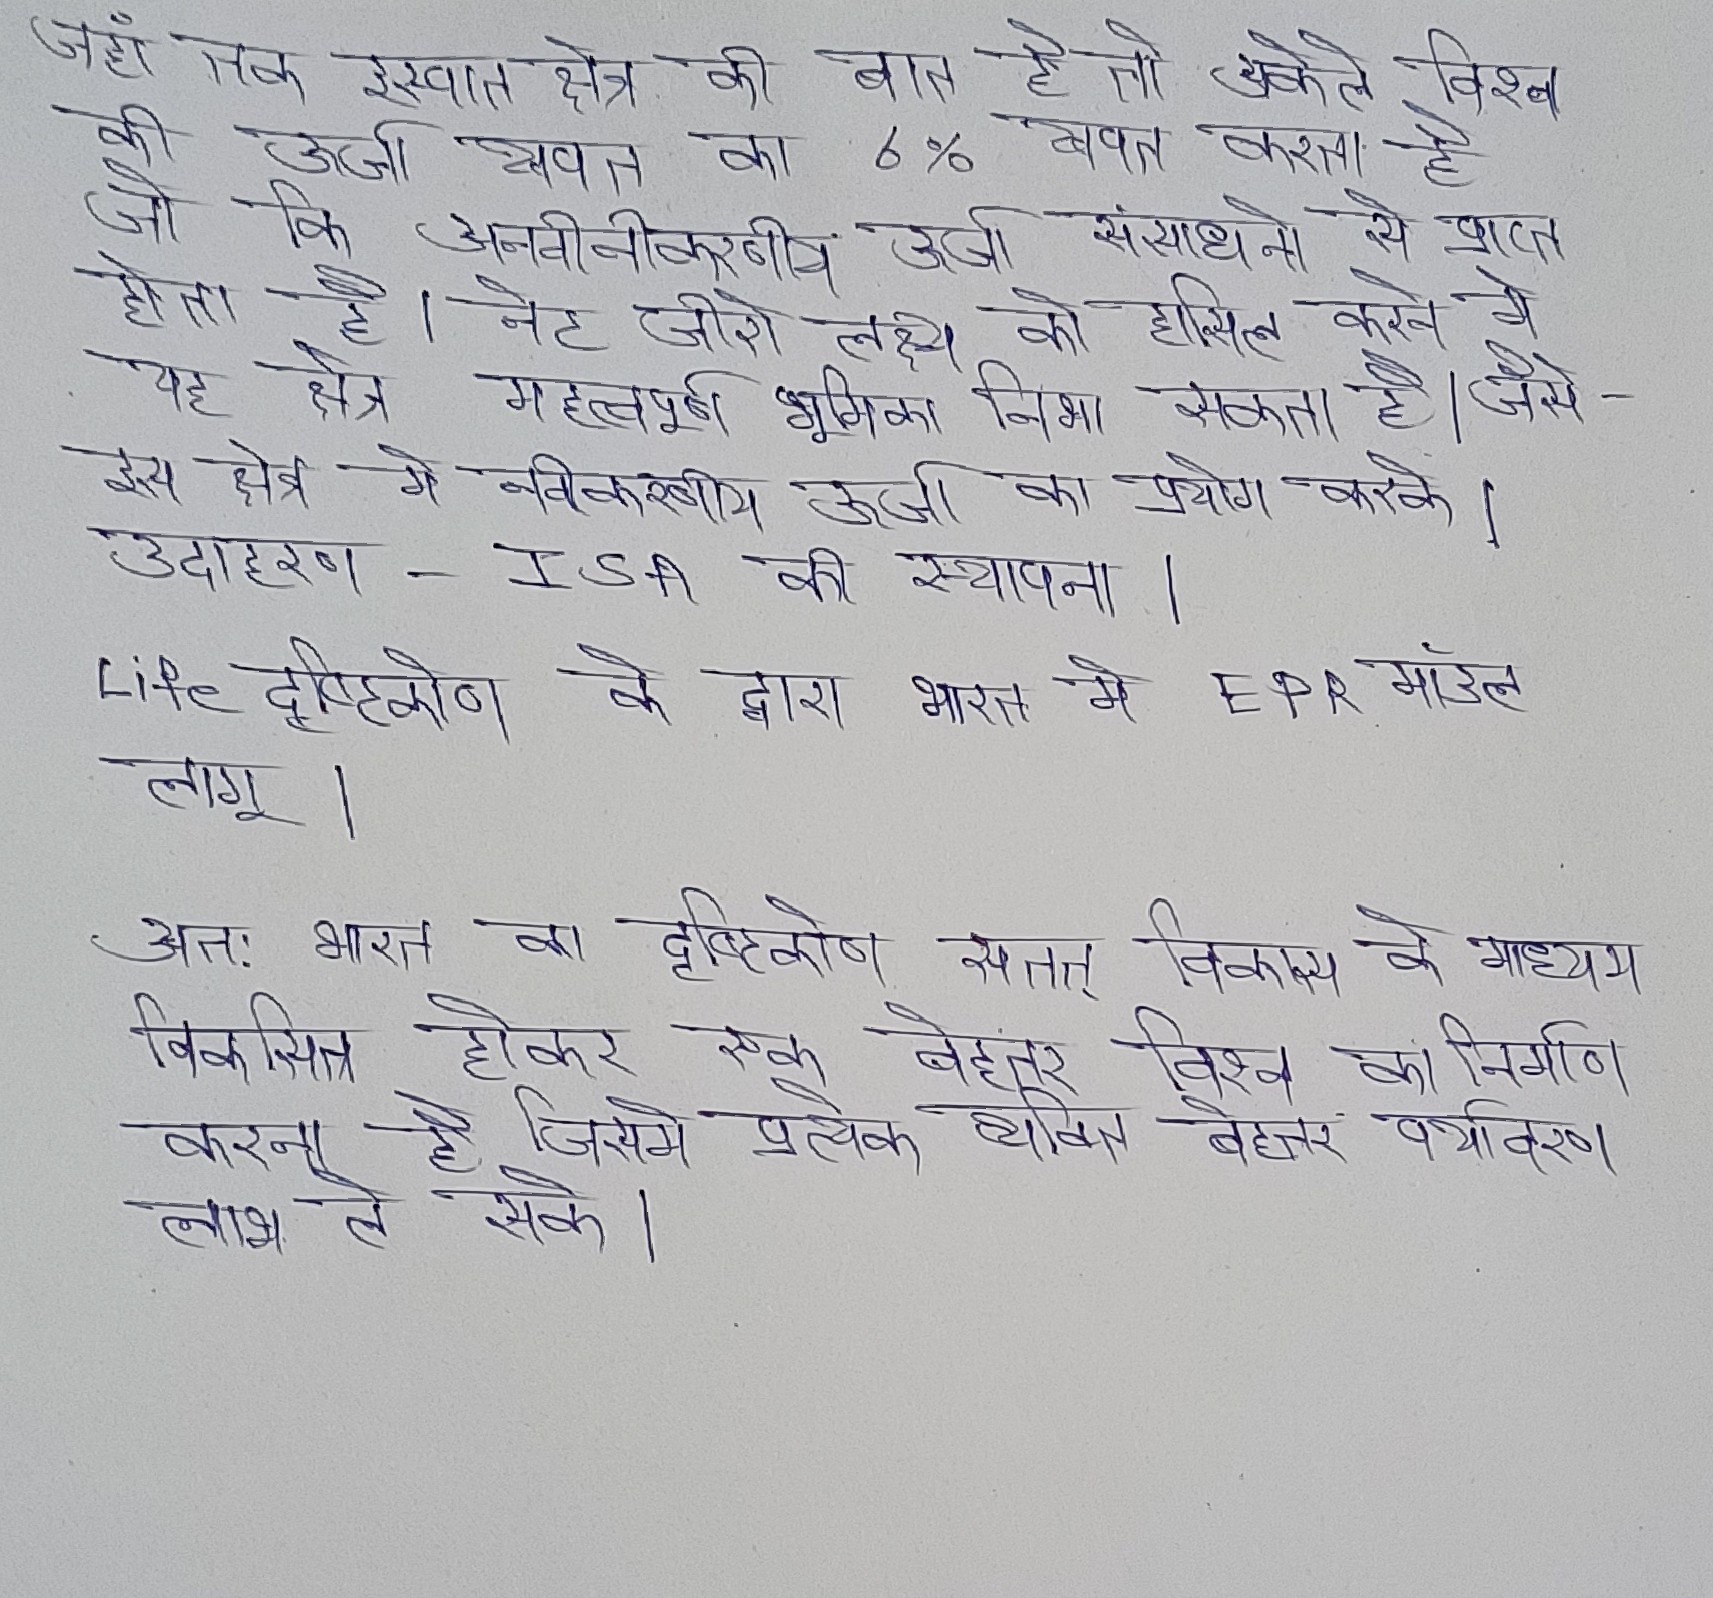 जहाँ तक इस्पात क्षेत्र की बात है तो अकेले विश्व
की ऊर्जा खपत का 6% खपत करता है
जो कि अनवीनीकरणीय ऊर्जा संसाधनो से प्राप्त
होता है। नेट जीरो लक्ष्य को हासिल करने मे
यह क्षेत्र महत्वपूर्ण भूमिका निभा सकता है। जैसे -
इस क्षेत्र मे नवीकरणीय ऊर्जा का प्रयोग करके।
उदाहरण - ISA की स्थापना।
Life दृष्टिकोण के द्वारा भारत मे EPR मॉडल
लागू।
अतः भारत का दृष्टिकोण सतत् विकास के माध्यम
विकसित होकर एक बेहतर विश्व का निर्माण
करना है जिसमे प्रत्येक व्यक्ति बेहतर पर्यावरण
लाभ ले सके।